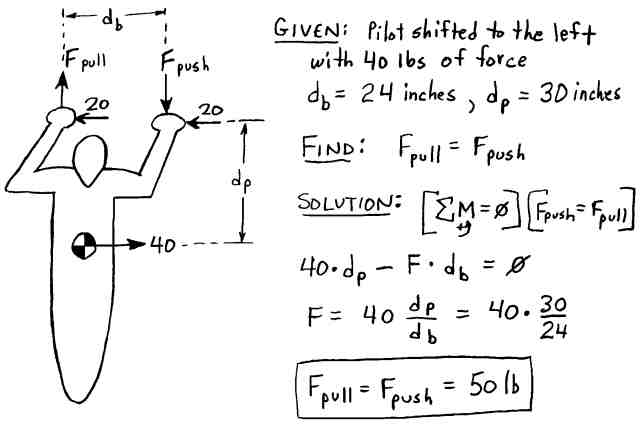 d_b
F_pull
F_push
20
20
d_p
40
GIVEN: Pilot shifted to the left
with 40 lbs of force
d_b = 24 inches, d_p = 30 inches
FIND: F_pull = F_push
SOLUTION: [ΣM = ∅] [F_push = F_pull]
+
40 · d_p − F · d_b = ∅
F = 40 d_p/d_b = 40 · 30/24
F_pull = F_push = 50 lb